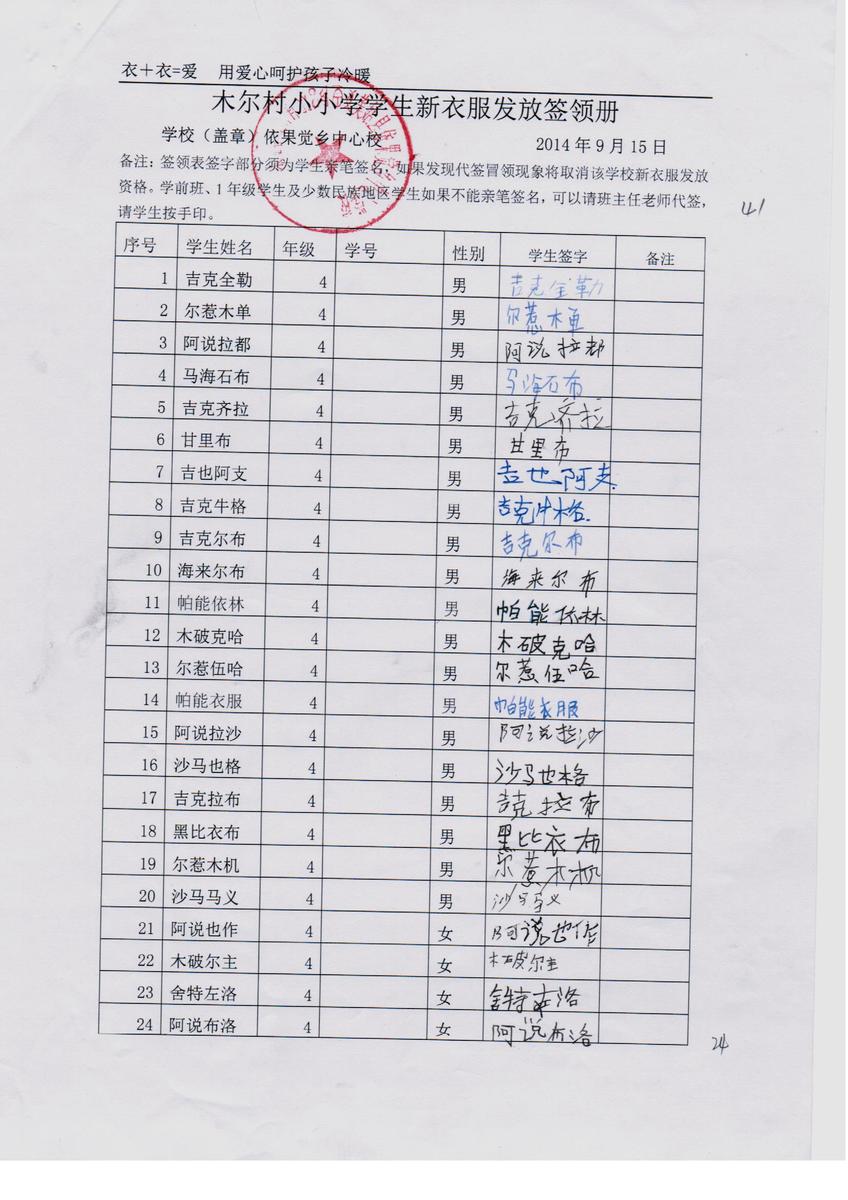 衣+衣=爱 用爱心呵护孩子冷暖
木尔村小小学学生新衣服发放签领册
学校（盖章）依果觉乡中心校 2014年9月15日
备注：签领表签字部分须为学生亲笔签名，如果发现代签冒领现象将取消该学校新衣服发放
资格。学前班、1年级学生及少数民族地区学生如果不能亲笔签名，可以请班主任老师代签，
请学生按手印。
41
序号 学生姓名 年级 学号 性别 学生签字 备注
1 吉克全勒 4 男 吉克全勒
2 尔惹木单 4 男 尔惹木单
3 阿说拉都 4 男 阿说拉都
4 马海石布 4 男 马海石布
5 吉克齐拉 4 男 吉克齐拉
6 甘里布 4 男 甘里布
7 吉也阿支 4 男 吉也阿支
8 吉克牛格 4 男 吉克牛格
9 吉克尔布 4 男 吉克尔布
10 海来尔布 4 男 海来尔布
11 帕能依林 4 男 帕能依林
12 木破克哈 4 男 木破克哈
13 尔惹伍哈 4 男 尔惹伍哈
14 帕能衣服 4 男 帕能衣服
15 阿说拉沙 4 男 阿说拉沙
16 沙马也格 4 男 沙马也格
17 吉克拉布 4 男 吉克拉布
18 黑比衣布 4 男 黑比衣布
19 尔惹木机 4 男 尔惹木机
20 沙马马义 4 男 沙马马义
21 阿说也作 4 女 阿说也作
22 木破尔主 4 女 木破尔主
23 舍特左洛 4 女 舍特左洛
24 阿说布洛 4 女 阿说布洛
24